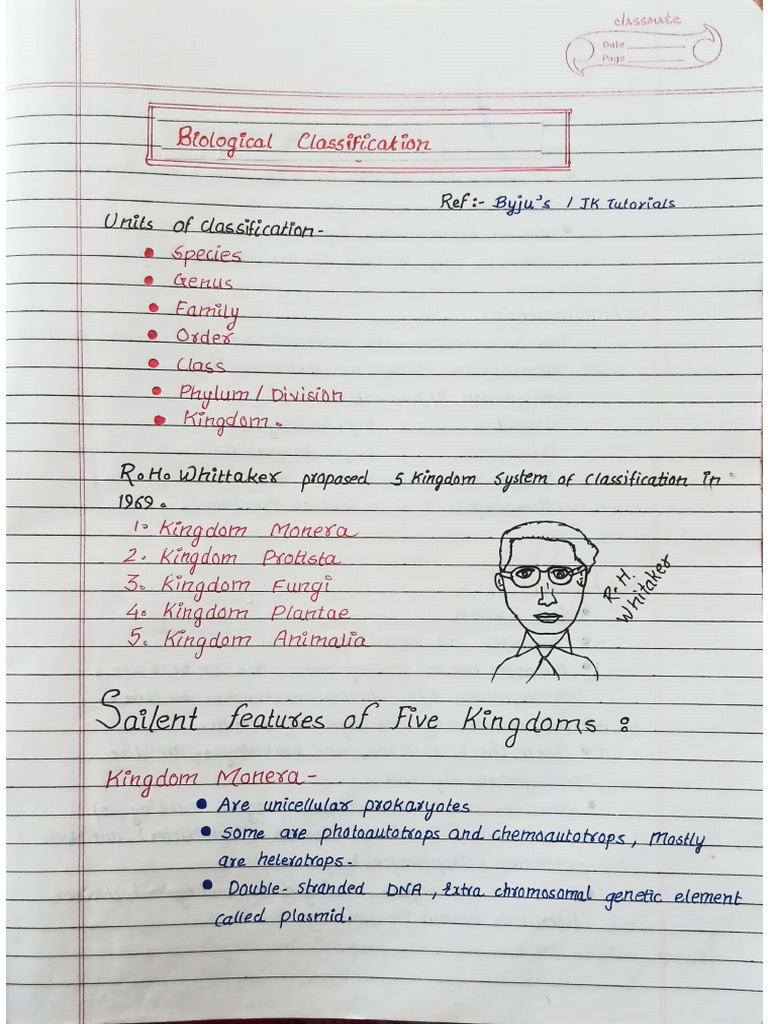 classmate
Date
Page
Biological Classification
Ref:- Byju's / JK Tutorials
Units of classification-
• Species
• Genus
• Family
• Order
• Class
• Phylum / Division
• Kingdom.
R.H. Whittaker proposed 5 Kingdom System of classification in
1969.
1. Kingdom Monera
2. Kingdom Protista
3. Kingdom Fungi
4. Kingdom Plantae
5. Kingdom Animalia
R.H.
Whitaker
Sailent features of Five Kingdoms :
Kingdom Monera-
• Are unicellular prokaryotes
• Some are photoautotrops and chemoautotrops, Mostly
are heterotrops.
• Double-stranded DNA, Extra chromosomal genetic element
called plasmid.